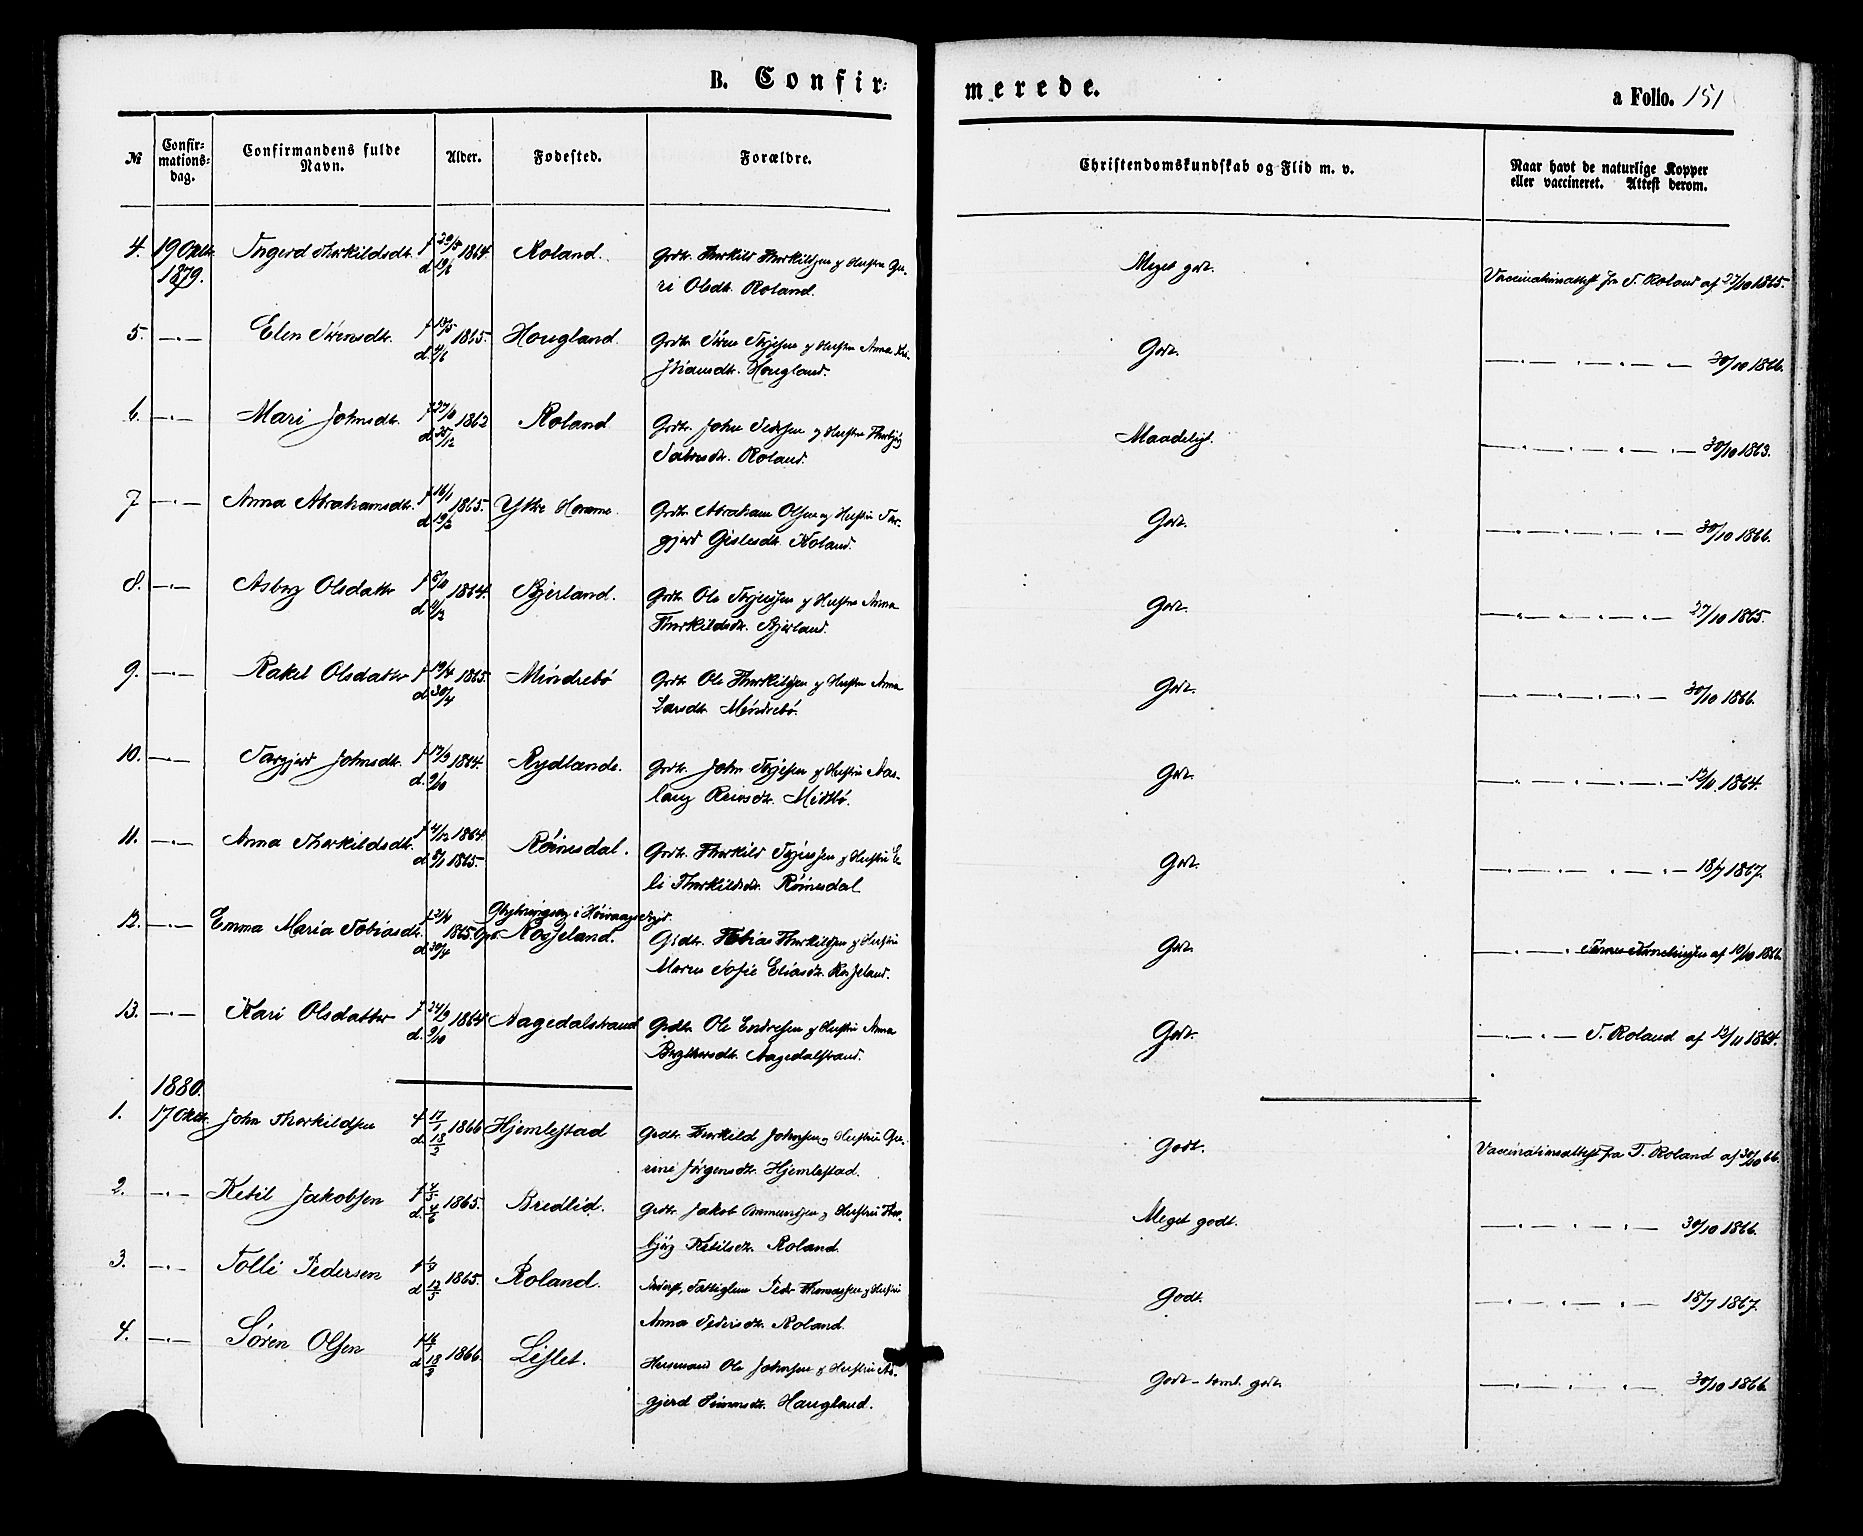 B. Confir-
merede.
a Folio. 151
№
Confir-
mations-
dag.
Confirmandens fulde
Navn.
Alder.
Fødested.
Forældre.
Christendomskundskab og Flid m. v.
Naar havt de naturlige Kopper
eller vaccineret. Attest derom.
4. 19 Oktbr. Ingerd Thorkildsdtr. f 1864. Roland. Grdbr. Thorkild Thorkildsen og Hustru Gu-
1879. d ri Olsdtr. Roland.
Meget godt. Vaccinationsattest fra T. Roland af 27/10 1865.
5. —"— Elen Sørensdtr. f 1865. Hougland. Grdbr. Søren Terjesen og Hustru Anna Kri-
d stiansdtr. Hougland.
Godt. —"— 30/10 1866.
6. —"— Mari Johnsdtr. f 1862 Roland Grdbr. John Pedersen og Hustru Thorbjør
d Roland.
Maadeligt. —"— 30/10 1863.
7 —"— Anna Abrahamsdtr. f 16/1 1865. Ytre Homme. Grdbr. Abraham Olsen og Hustru Tar-
d gjerd Gislesdtr. Roland.
Godt. —"— 30/10 1866.
8. —"— Asborg Olsdatter f 1864. Bjerland. Grdbr. Ole Terjesen og Hustru Anna
d Thorkildsdtr. Bjerland.
Godt. —"— 27/10 1865.
9. —"— Rakel Olsdatter f 19/4 1865. Mindrebø Grdbr. Ole Thorkildsen og Hustru Anna
d 30/4 Larsdtr. Mindrebø.
Godt. —"— 30/10 1866.
10. —"— Targjerd Johnsdtr. f 1864. Rydlende. Grdbr. John Terjesen og Hustru Aas-
d. 9/10 laug Reiersdtr. Midtbø.
Godt. —"— 12/11. 1864.
11. —"— Anna Thorkildsdtr. f 4/12 1864
d 8/1 1865. Røinesdal. Grdbr. Thorkild Terjesen og Hustru E-
li Thorkildsdtr. Røinesdal
Godt. —"— 18/7 1867.
12. —"— Emma Maria Tobiasdtr. f 2/4 1865. i Høivaag
d 30/4 Rosseland. Grdbr. Tobias Thorkildsen og Hustru
Maren Sofie Eliasdtr. Rosseland.
Godt. —"— af 10/10 1866.
13. —"— Kari Olsdatter f 24/9 1864 Aagedalstrand Grdbr. Ole Endresen og Hustru Anna
d. 9/10 Aagedalstrand.
Godt. —"— T. Roland af 12/11 1864.
1880.
1. 17 Oktbr. John Thorkildsen f 17/1 1866 Hjemlestad Grdbr. Thorkild Johnsen og Hustru Gu-
d. 18/3 rine Jørgensdtr. Hjemlestad.
Godt. Vaccinationsattest fra T. Roland af 30/10 66.
2. —"— Ketil Jakobsen f 4/5 1865. Bredlid. Grdbr. Jakob Ommundsen og Hustru Thor-
d. 4/6 bjørg Ketilsdtr. Roland.
Meget godt. —"— 30/10 1866.
3. —"— Tolli Pedersen f 1865. Roland. Inderst, Fattiglem Peder Thomassen og Hustru
d 12/5 Anna Pedersdtr. Roland.
Godt. —"— 18/7 1867.
4. —"— Søren Olsen f 16/1 1866. Lislet. Huusmand Ole Johnsen og Hustru As-
d 18/3 gjerd Simonsdtr. Haugland.
Godt – temml. godt. —"— 30/10 1866.